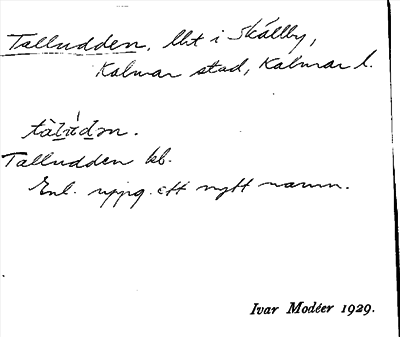 Talludden, lht i Skälby,
Kalmar stad, Kalmar l.
Talludden bb.
Enl. uppg. ett nytt namn.
Ivar Modéer 1929.